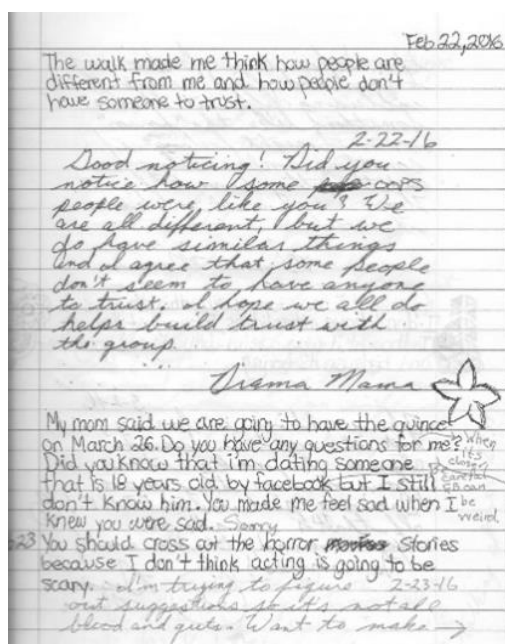 Feb 22, 2016
The walk made me think how people are
different from me and how people don't
have someone to trust.
2-22-16
Good noticing! Did you
notice how some oops
people were like you? We
are all different, but we
do have similar things
and I agree that some people
don't seem to have anyone
to trust. I hope we all do
helps build trust with
the group.
Drama Mama
My mom said we are going to have the quince
on March 26. Do you have any questions for me? When
it's
closer
Did you know that i'm dating someone
Careful
that is 18 years old by facebook but I still
FB can
don't know him. You made me feel sad when I be
weird.
knew you were said. Sorry
23 You should cross out the horror movies stories
because I don't think acting is going to be
scary. I'm trying to figure 2-23-16
out suggestions so it's not all
blood and guts. Want to make →